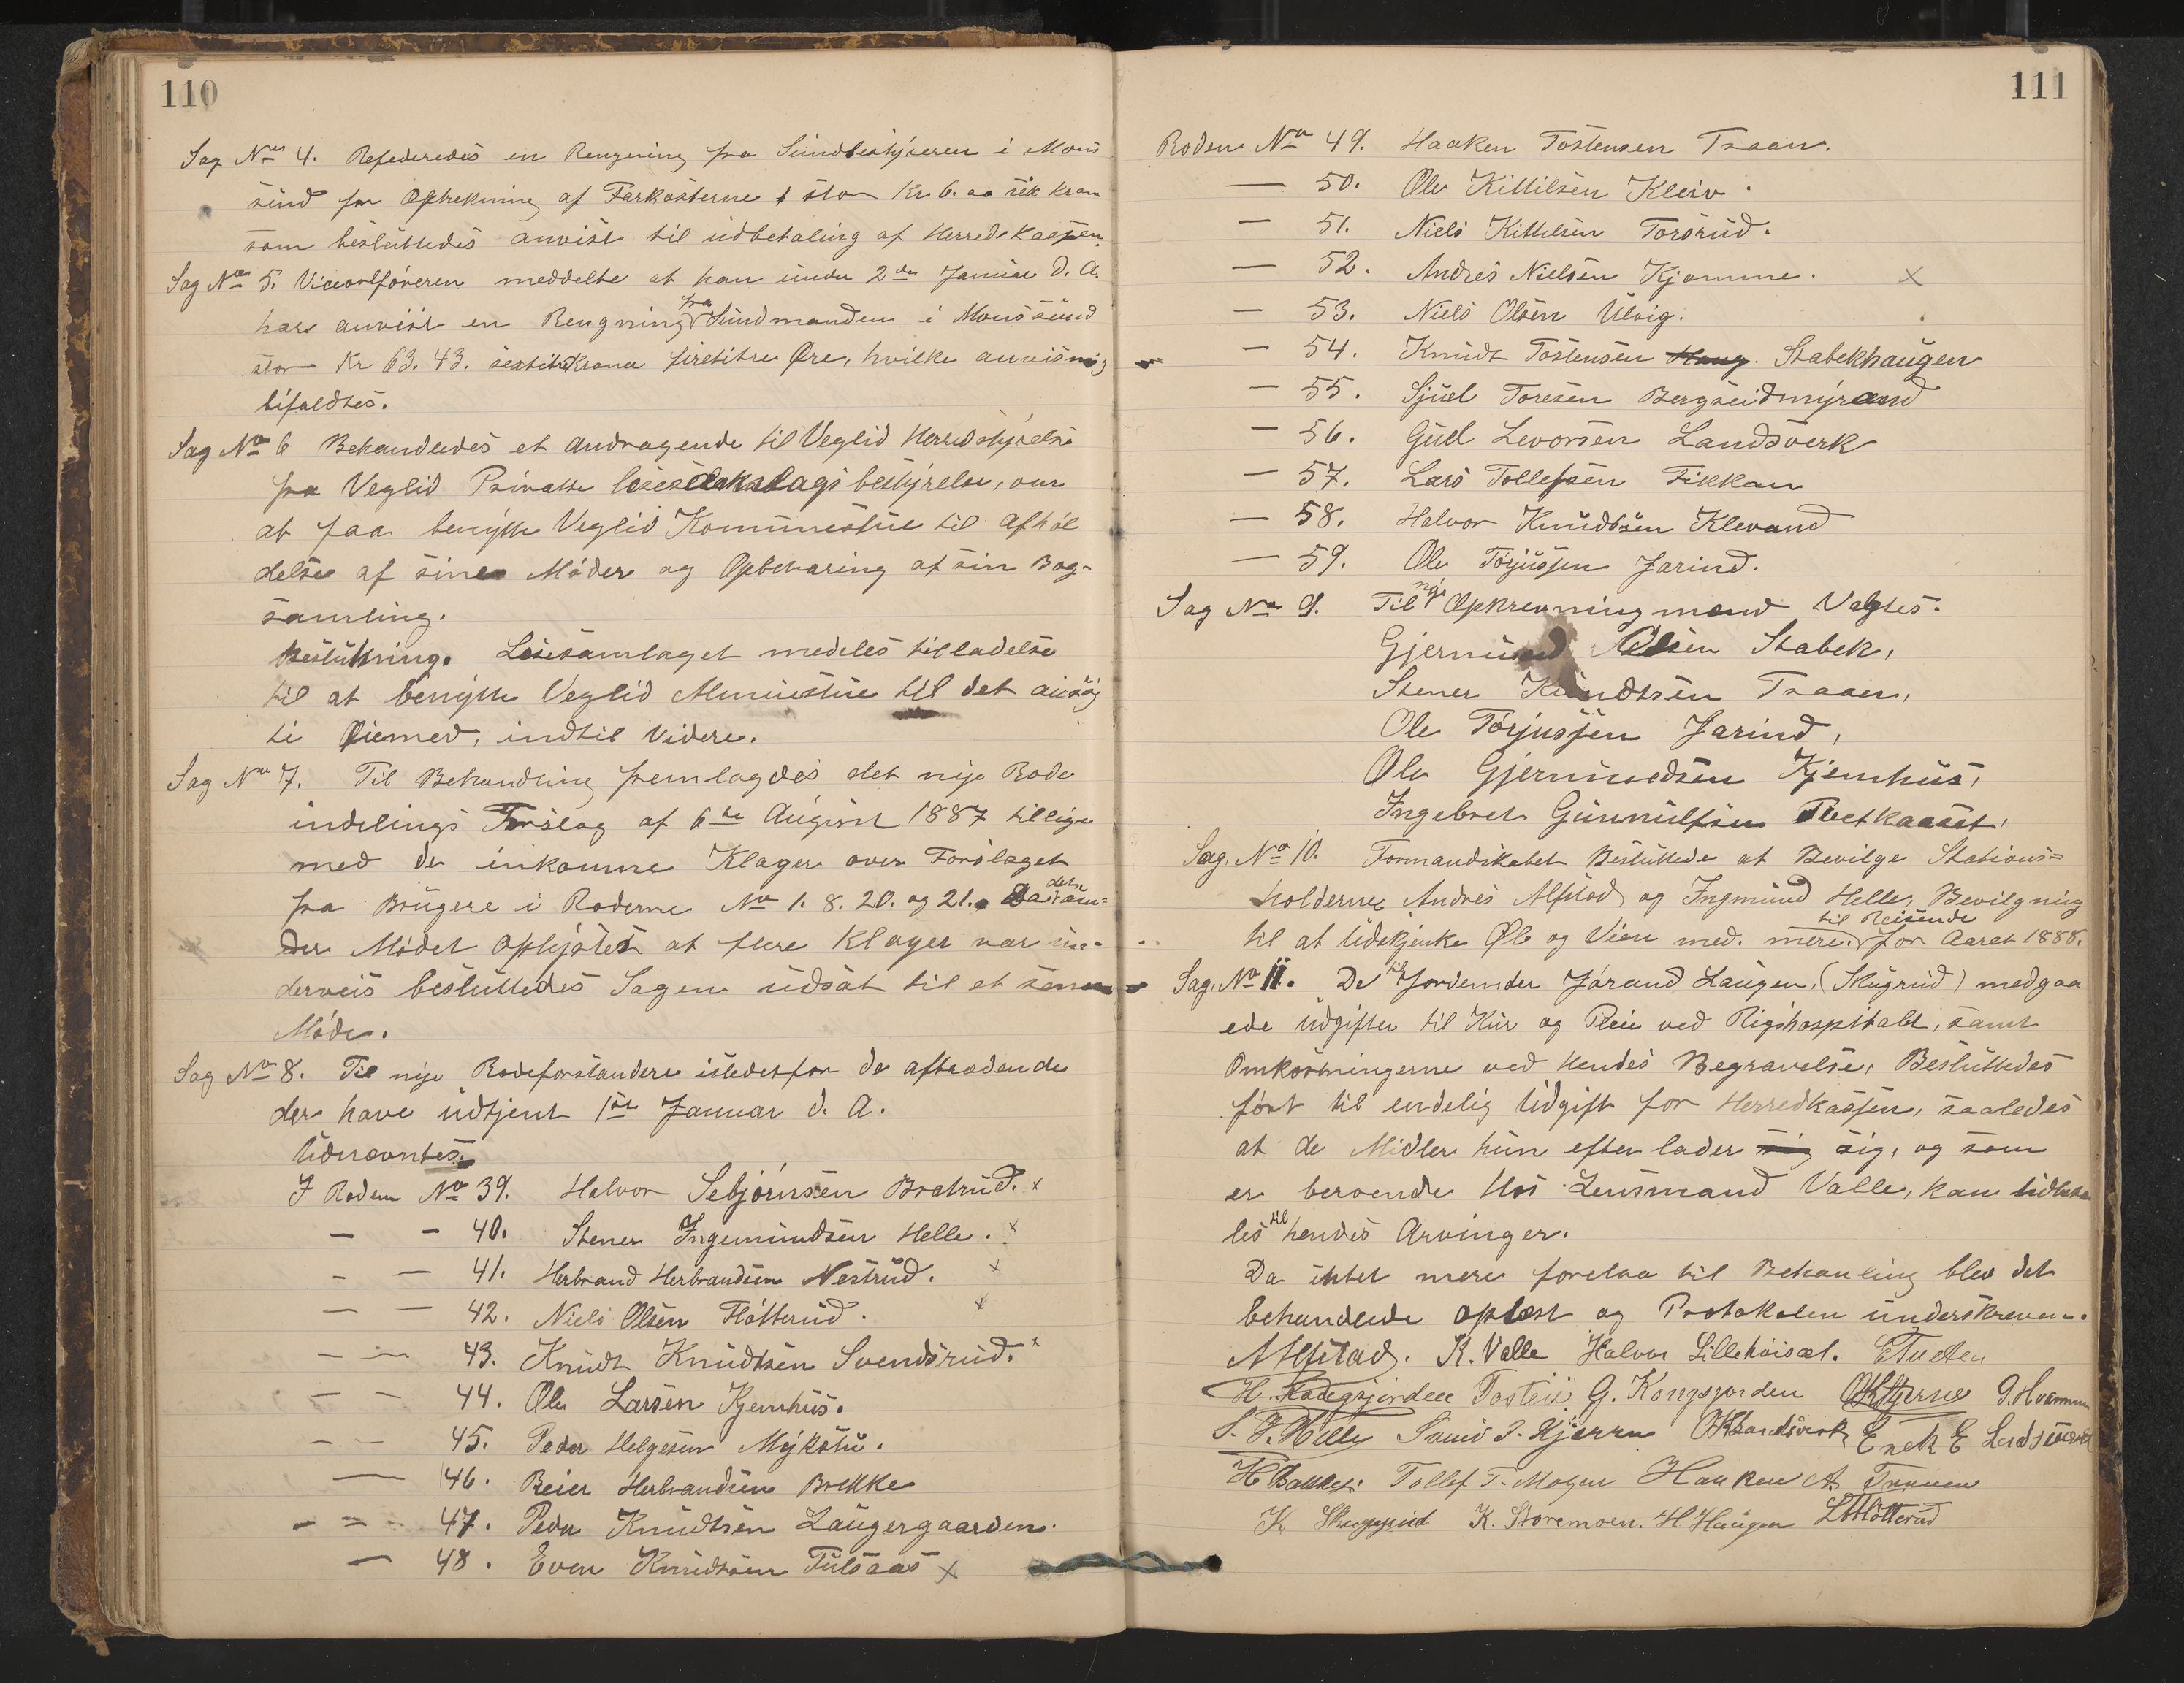 110
Sag No 4. Refederedes en Rengning fra Sundbestýreren i Mons
sund for Optrekning af Farkosterne stor Kr. 6. aa sek kron
som besluttedes anvist til udbetaling af Herredskassen.
Sag No 5. Viceorlføreren meddelte at han under 2den Januar d. A.
hare anvist en Rengning fra Sundmanden i Monssund
stor Kr 63. 43. sextitre Kroner firetitre Øre, hvilke anvisning
bifaldtes.
Sag No 6 Behandledes et Andragende til Veglid Herredstýrelse
fra Veglid Private bestýrelse, om
at faa benýtte Veglid Kommunestue til afhol
delse af sine Møder og Opbevaring af sin Bog-
samling.
Beslutning. Lesesamlaget medeles tilladelse
til at benýtte Veglid Muniestue til det ansøg
te Øiemed, indtil Videre.
Sag No 7. Til Behandling fremlagdes det nye Rode
indelings Forslag af 6te August 1887 tillige
med de inkomne Klager over Forslaget
fra Brugere i Roderne No 1. 8. 20. og 21. Da det
der Mødet oplýstes at flere Klager var un-
derveis besluttedes Sagen udsat til et senere
Møde.
Sag No 8. Til nye Rodeforstandere istedetfor de aftrædende
der have udtjent 1ste Januar d. A.
Udnævntes.
I Roden No 39. Halvor Sebjørnsen Bratrud. x
— — 40. Stener Ingemundsen Helle. x
— — 41. Herbrand Herbrandsen Nestrud. x
— — 42. Niels Olsen Fløtterud. x
— — 43. Knudt Knudtsen Svendsrud. x
— — 44. Ole Larsen Kjemhus.
— — 45. Peder Helgesen Mýkstu.
— 46. Beier Herbrandsen Brekke
— — — 47. Peder Knudtsen Laugergaarden.
— 48. Even Knudtsen Fulsaas x
111
Roden No 49. Haaken Tostensen Traaen.
— 50. Ole Kittilsen Kleiv.
— 51. Niels Kittilsen Torsrud.
— 52. Andres Nielsen Kjomme. x
— 53. Niels Olsen Ulvig.
— 54. Knudt Tostensen Haug. Stabekhaugen
— 55. Sjuel Toresen Bergseidmýrand
— 56. Gud Levorsen Landsverk
— 57. Lars Tollefsen Fikkan
— 58. Halvor Knudtsen Klevand
— 59. Ole Torjussen Jarind.
Sag No 9. Til nýe Opkrevningmænd Valgtes.
Gjermund Olsen Stabek,
Stener Knudtsen Traaen,
Ole Torjussen Jarind,
Ole Gjermundsen Kjemhus,
Ingebret Gunnulfsen
Sag. No 10. Formandskabet Besluttede at Bevilge Stations=
holderne Andres Alfstad og Ingmund Helle, Bevilgning
til at Udskjenke Øl og Vien med. mere. til Reisende for Aaret 1888.
Sag. No 11. De til Jordemder Jørand Laugen, (Skugrud) medgaa
ede Udgifter til Kur og Pleie ved Rigshospitalet, samt
Omkostningerne ved Hendes Begravelse, Besluttedes
ført til endelig Udgift for Herredkassen, saaledes
at de Midler hun efter lader sig sig, og som
er beroende Hos Lensmand Valle, kan Udbeta
les til hendes Arvinger.
Da intet mere forelaa til Behanling blev det
behandlede oplæst og Protokolen underskreven.
A Alfstad. K. Valle Halvor Lillehøisæt.
Tostei G. Kongsjorden OKHjerne
S. I. Helle Svend T. Kjerra OKLandsverk Enek E Landsverk
H Bakke. Tollef T. Mogen Haaken A Traaen
K K. Storemoen. H Haugen Fløtterud